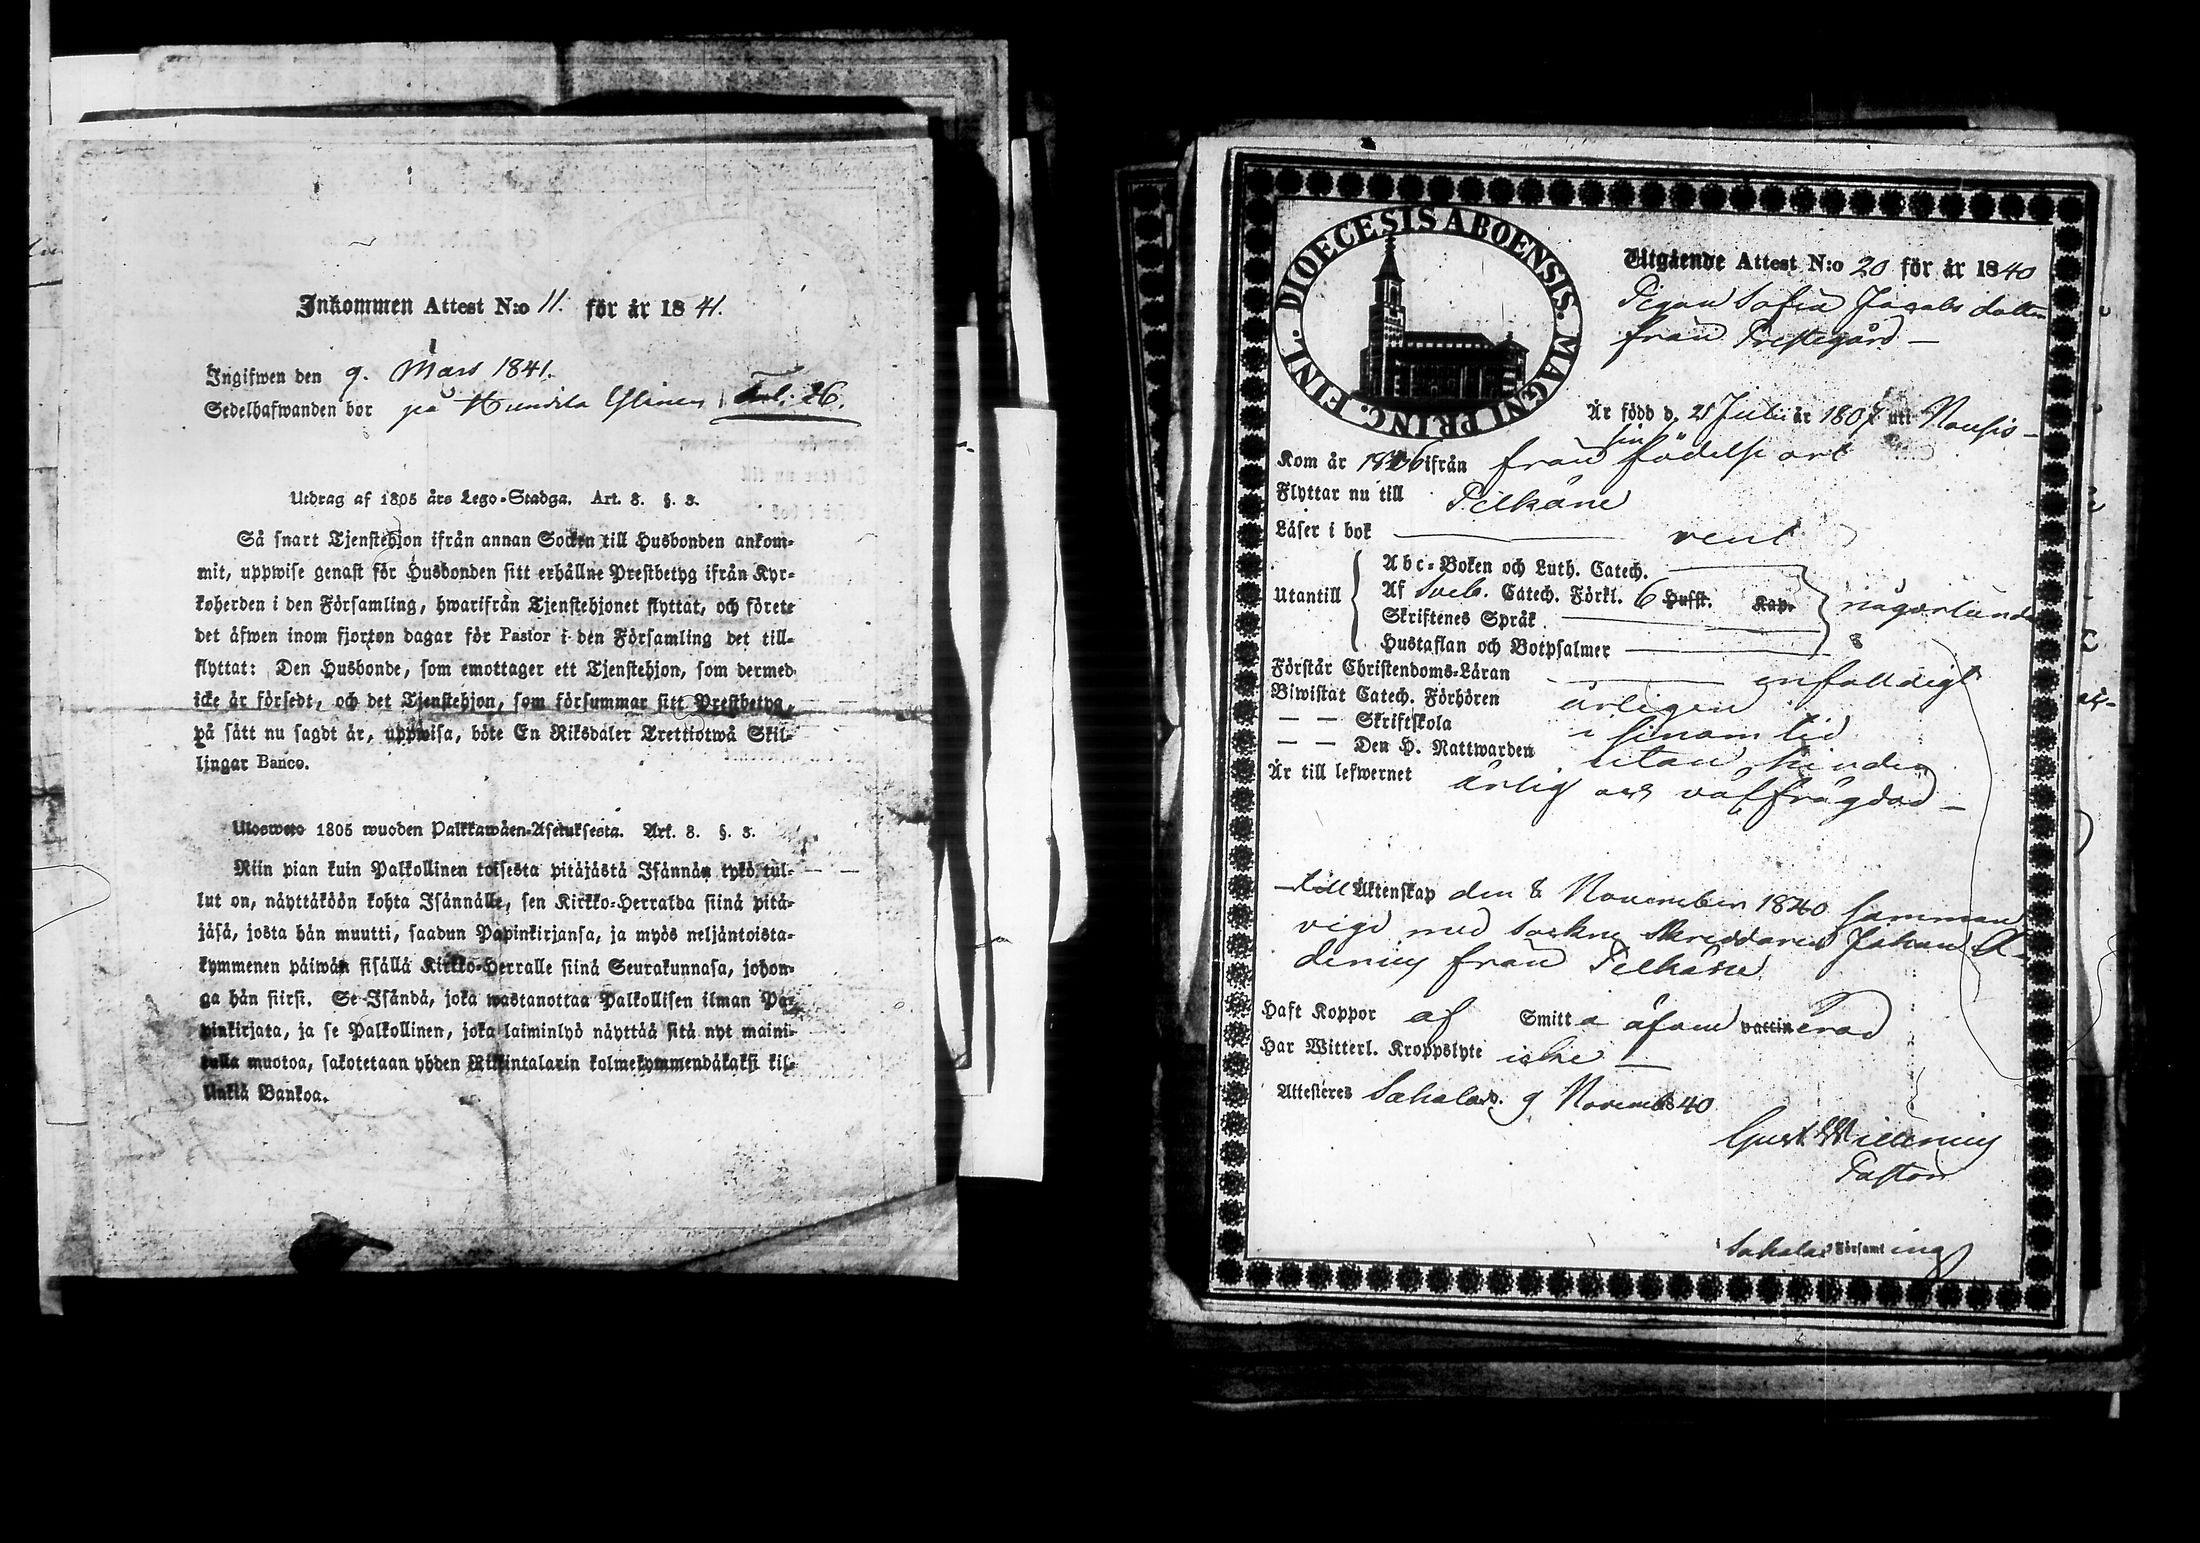 Inkommen Attest N:o 11. för år 1841.
Ingifwen den 9. Mars 1841.
Sedelhafwanden bor på Fol. 26.
Utdrag af 1805 års Lego-Stadga. Art. 8. §. 3.
Så snart Tjenstehjon ifrån annan Socken till Husbonden ankom-
mit, uppwise genast för Husbonden sitt erhållne Prestbetyg ifrån Kyr-
koherden i den Församling, hwarifrån Tjenstehjonet flyttat, och förete
det äfwen inom fjorton dagar för Pastor i den Församling det till-
flyttat: Den Husbonde, som emottager ett Tjenstehjon, som dermed
icke är försedt, och det Tjenstehjon, som försummar sitt Prestbetyg,
på sätt nu sagdt är, uppwisa, böte En Riksdaler Trettiotwå Skil-
lingar Banco.
Ulosweto 1805 wuoden Palkkawäen-Asetuksesta. Art. 8. §. 3.
Niin pian kuin Palkollinen toisesta pitäjästä Isännän tykö tul-
lut on, näyttäköön kohta Isännälle, sen Kirkko-Herralda siinä pitä-
jäsä, josta hän muutti, saadun Papinkirjansa, ja myös neljäntoista-
kymmenen päiwän sisällä Kirkko-Herralle siinä Seurakunnasa, johon-
ga hän siirsi. Se Isändä, joka wastanottaa Palkollisen ilman Pa-
pinkirjata, ja se Palkollinen, joka laiminlyö näyttää sitä nyt maini-
tulla muotoa, sakotetaan yhden Riksintalarin kolmekymmendäkaksi kil-
linkiä Bankoa.
DIOECESIS ABOENSIS. MAGNI PRINC. FINL.
Utgående Attest N:o 20 för år 1840
Pigan Sofia Jacobs dotter
från Prestegård
Är född d. 21 Juli år 1807 uti Nousis
sin
Kom år 1826 ifrån från födelse ort
Flyttar nu till Pelkäne
Läser i bok rent
Abc-Boken och Luth. Catech.
Utantill Af Sveb. Catech. Förkl. 6 Hufst. Kap. någorlunda
Skriftenes Språk
Hustaflan och Botpsalmer
Förstår Christendoms-Läran enfaldigt
Biwistat Catech. Förhören årligen
— — Skriftskola i sinom tid
— — Den H. Nattwarden utan hinder
Är till lefwernet ärlig och välfrägdad
till Äktenskap den 8 November 1840 samman
vigd med sockne Skreddaren Johan
från Pelkäne
Haft Koppor af Smitta äfven vaccinerad
Har Witterl. Kroppslyte icke
Attesteres Sahalax d. 9 Novemb 1840
Gust.
Pastor
i Sahalax Församling